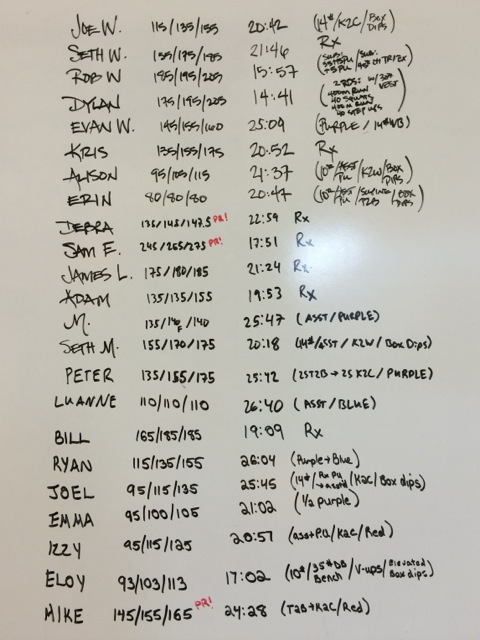 JOE W. 115/135/155 20:42 (14#/K2C/Box Dips)
SETH W. 155/175/195 21:46 Rx
ROB W 185/195/205 15:57
DYLAN 175/195/205 14:41
400m RUN
40 SQUATS
400m RUN
40 STEP UPS
EVAN W. 145/155/160 25:09 (PURPLE / 14#WB)
KRIS 135/155/175 20:52 Rx
ALISON 95/105/115 21:37 (10#/ASST PU/K2W/Box DIPS)
ERIN 80/80/80 20:47 (10#/ASST PU/ T2B/Box DIPS)
DEBRA 135/145/147.5 PR! 22:59 Rx
SAM E. 245/265/275 PR! 17:51 Rx
JAMES L. 175/180/185 21:24 Rx
ADAM 135/135/155 19:53 Rx
M. 135/140F/140 25:47 (ASST/PURPLE)
SETH M. 155/170/175 20:18 (14#/ASST/K2W/Box Dips)
PETER 135/155/175 25:42 (25T2B → 25 K2C/PURPLE)
LUANNE 110/110/110 26:40 (ASST/BLUE)
BILL 165/185/185 19:09 Rx
RYAN 115/135/155 26:04 (Purple→Blue)
JOEL 95/115/135 25:45 (14#/Rx PU → asstd/K2C/Box dips)
EMMA 95/100/105 21:02 (1/2 purple)
IZZY 95/115/125 20:57 (asst P.U/K2C/Red)
ELOY 93/103/113 17:02 (10#/35#DB Bench/V-ups/Elevated Box dips)
MIKE 145/155/165 PR! 24:28 (T2B→K2C/Red)